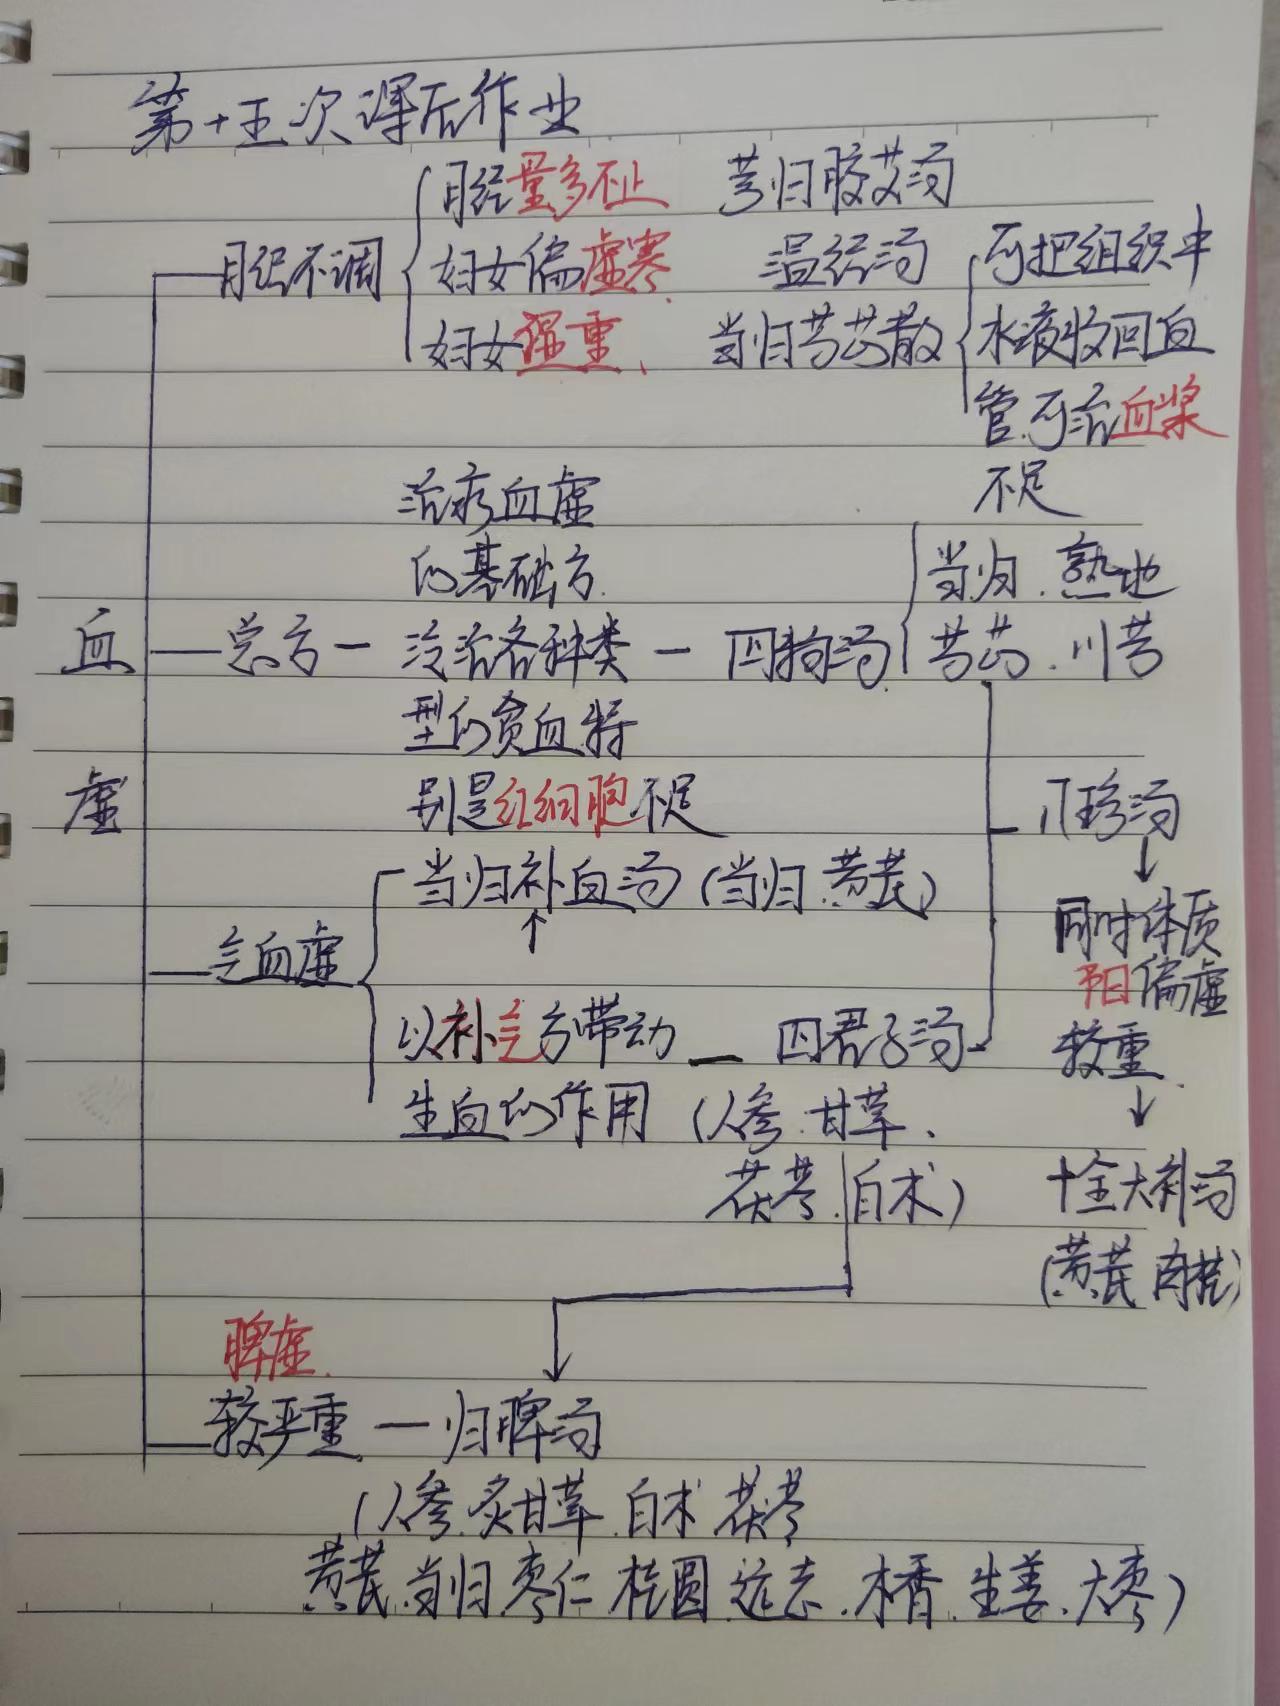 第十五次课后作业
月经量多不止 芎归胶艾汤
月经不调
妇女偏虚寒 温经汤
妇女湿重、 当归芍药散
可把组织中
水液收回血
管.可治血浆
不足
治疗血虚
的基础方.
血虚
总方 — 泛治各种类 — 四物汤
型的贫血特
别是红细胞不足
当归.熟地
芍药.川芎
八珍汤
↓
同时体质
阳偏虚
较重.
↓
十全大补汤
(黄芪 肉桂)
气血虚
当归补血汤 (当归.黄芪)
↑
以补气方带动 — 四君子汤
生血的作用 (人参.甘草、
茯苓.白术)
脾虚.
较严重 — 归脾汤
(人参.炙甘草.白术 茯苓
黄芪.当归.枣仁.桂圆.远志.木香.生姜.大枣)